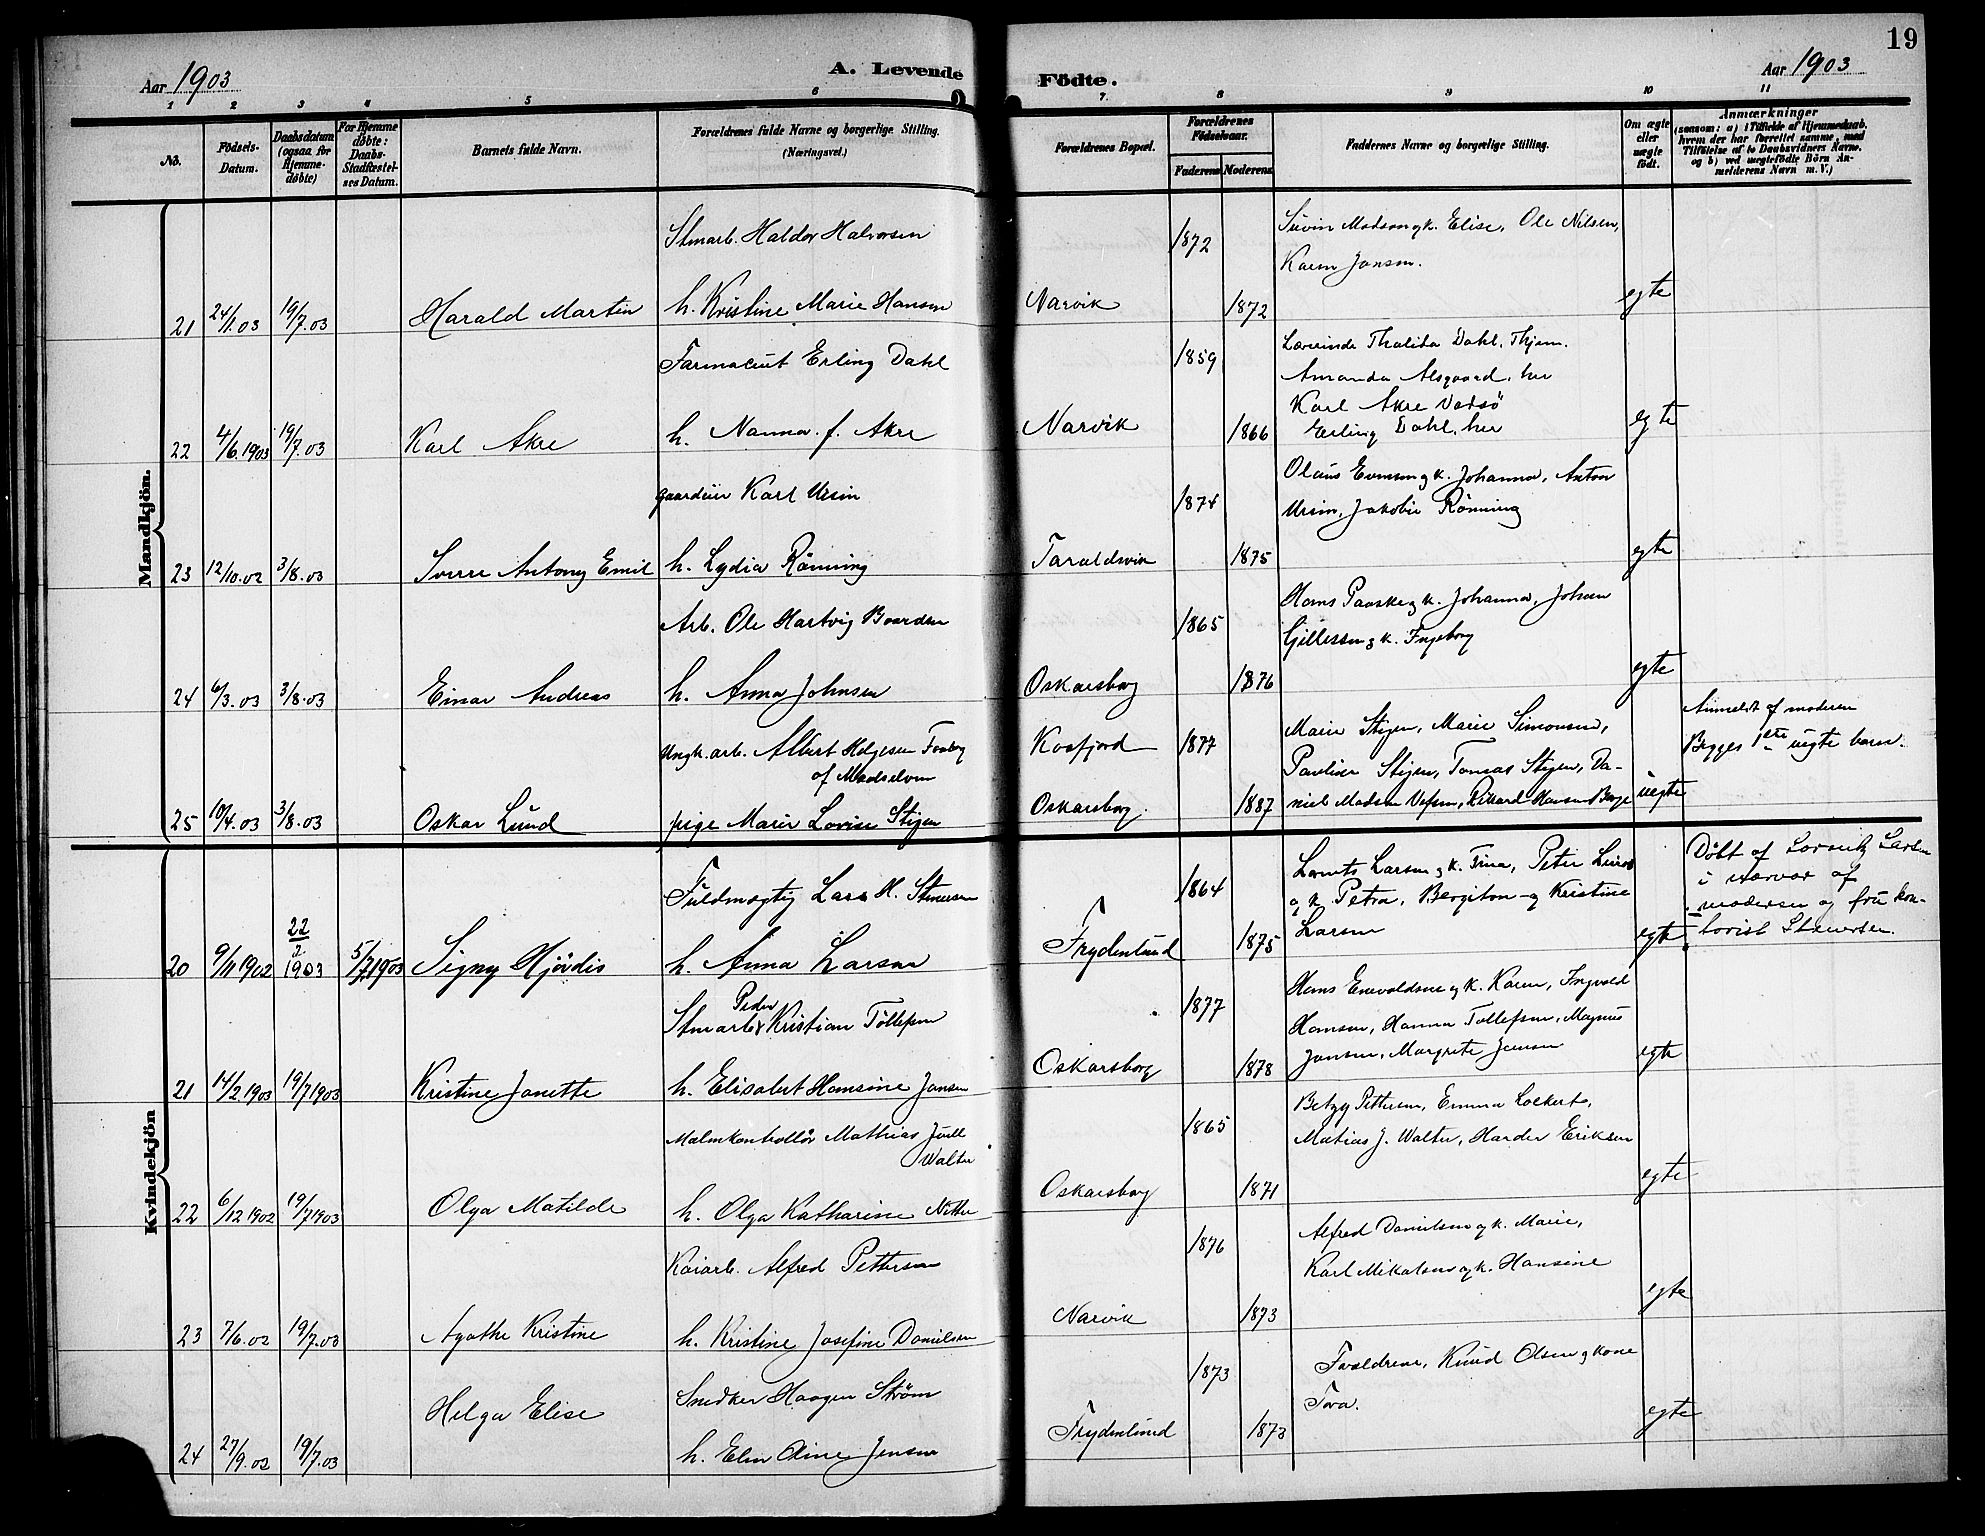 19
Aar 1903
A. Levende Födte.
Aar 1903
1 2 3 4 5 6 7. 8 9 10 11
No.
Födsels-Datum.
Daabsdatum (ogsaa for Hjemme-döbte)
For Hjemme döbte: Daabs-Stadfæstel-ses Datum.
Barnets fulde Navn.
Forældrenes fulde Navne og borgerlige Stilling.
(Næringsvei.)
Forældrenes Bopæl.
Forældrenes Födselsaar.
Faderens Moderens
Faddernes Navne og borgerlige Stilling.
Om ægte eller uægte födt.
Anmærkninger
(saasom: a) i Tilfælde af Hjemmedaab, hvem der har forrettet samme, med Tilföielse af to Daabsvidners Navne, og b) ved uægtefödte Börn An-melderens Navn m. V.)
Mandkjön.
Stmarb. Haldor Halvorsen 1872 Madsen og k. Elise, Ole Nilsen,
Karen Jansen.
21 24/1.03 19/7.03 Harald Martin h. Kristine Marie Hansen Narvik 1872 egte
Farmaceut Erling Dahl 1859 Lærerinde Thalita Dahl, Thjem.
Amanda Alsgaard, her
Karl Akre Vadsö
22 4/6.1903 19/7.03 Karl Akre h. Nanna f. Akre Narvik 1866 Erling Dahl, her egte
gaardeier Karl Ursin 1874 Olaus Evensen og k. Johanna, Anton
Ursin, Jakobie Rönning
23 12/10.02 3/8.03 Sverre Antony Emil h. Lydia Rönning Taraldsvik 1875 egte
Arb. Ole Hartvig Baardsen 1865 Hans Paaske og k. Johanna, Johan
og k. Ingeborg
24 6/3.03 3/8.03 Einar Andreas h. Anna Johnsen Oskarsborg 1876 egte
Ungk. arb. Albert Helgesen
of Maalselven Kvafjord 1877 Marie Stigen, Marie Simonsen,
Pauline Stigen, Tomas Stigen, Da-
Anmeldt af moderen
Begges 1ste uegte barn.
25 10/4.03 3/8.03 Oskar Lund pige Marie Lovise Stigen Oskarsborg. 1887 niel Madsen Vefsn, Rikard Hansen uegte
Kvindekjön
Fuldmægtig Lars H. Stenersen 1864 Larsen og k. Tina, Peter
og k. Petra, Bergiton og Kristine
Larsen
Döbt af Larsen
i nærvær af
moderen og fru kon-
torist Stenersen.
20 9/11 1902 22/2 1903 5/7 1903 Signy Hjördis h. Anna Larsen Frydenlund 1875 egte
Stmarb. Peder Kristian Tollefsen 1877 Hans Enevoldsen og k. Karen, Ingvald
Hansen, Hanna Tollefsen, Magnus
Jansen, Margrete Jensen
21 14/2 1903 19/7 1903 Kristine Janette h. Elisabet Hansine Jansen Oskarsborg 1878 egte
Malmkontrollör Mathias Juell
Walter 1865 Betzy Pettersen, Emma Lockert,
Matias J. Walter, Harder Eriksen
22 6/12 1902 19/7 1903 Olga Matilde h. Olga Katharine Oskarsborg 1871 egte
Kaiarb. Alfred Pettersen 1876 Alfred Danielsen og k. Marie,
Karl Mikalsen og k. Hansine
23 7/6.02 19/7.03 Agathe Kristine h. Kristine Josefine Danielsen Narvik 1873 egte
Snedker Haagen Ström 1873 Forældrene, Knud Olsen og kone
Tora.
24 27/9.02 19/7.03 Helga Elise h. Elen Jensen Frydenlund 1873 egte